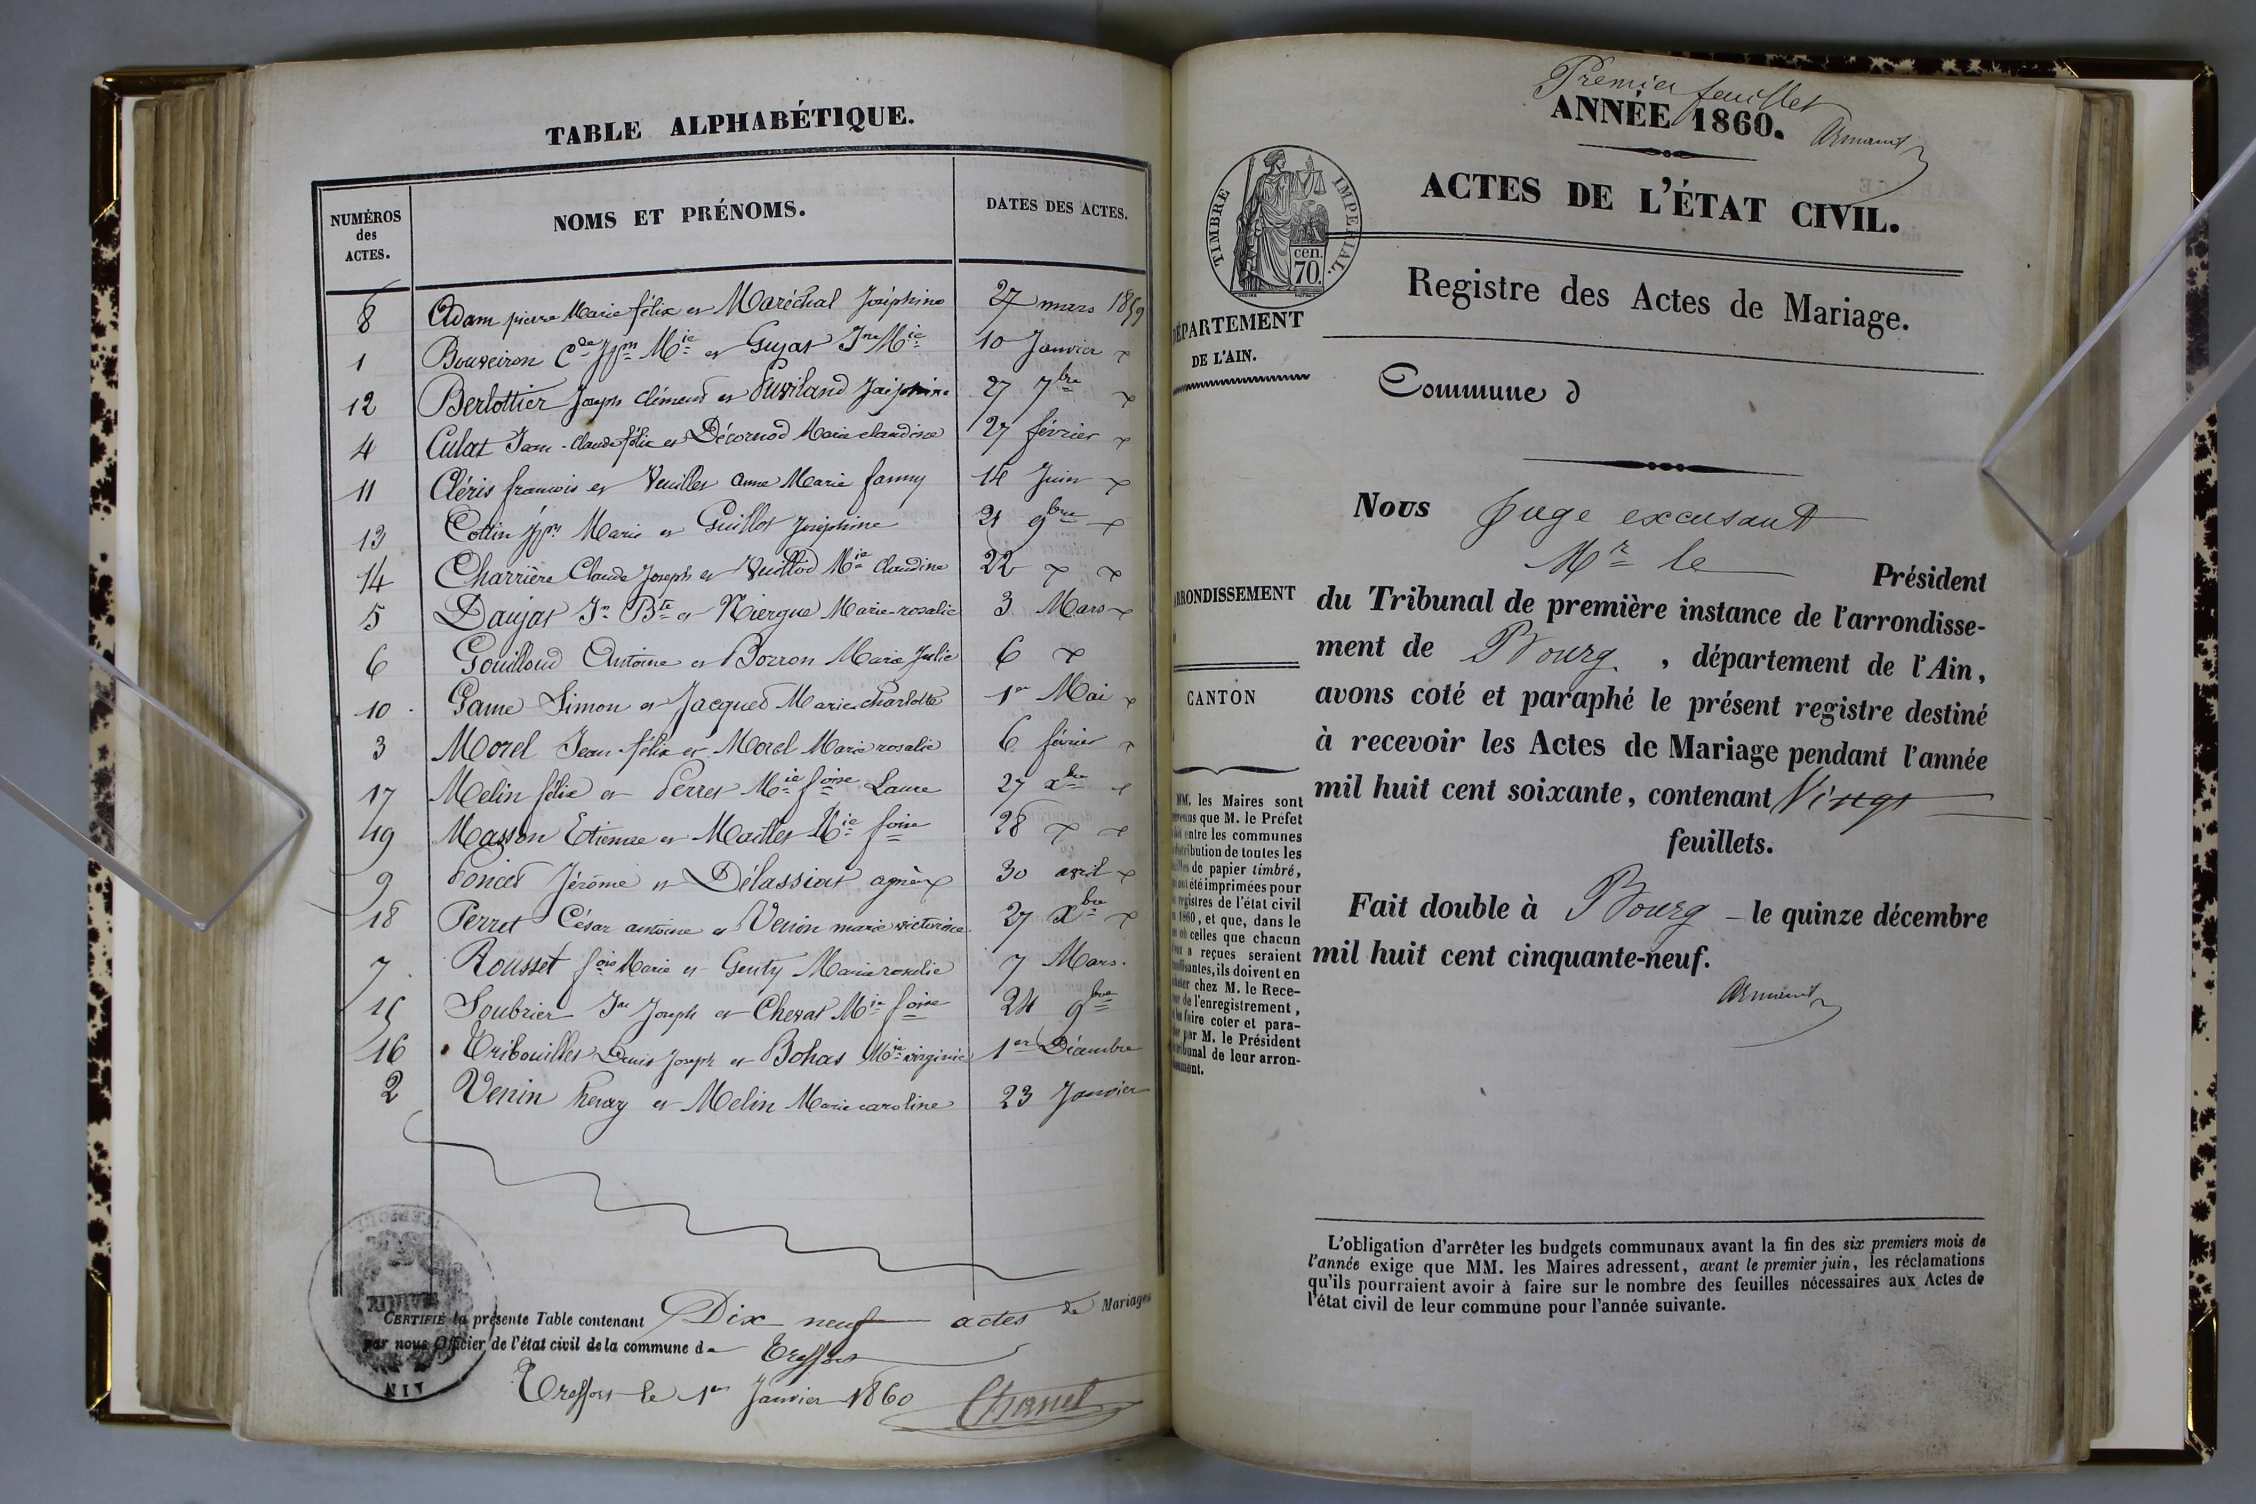 TABLE ALPHABÉTIQUE.
NUMÉROS des ACTES. NOMS ET PRÉNOMS. DATES DES ACTES.
8 Adam pierre Marie félix et Maréchal Joséphine 27 mars 1859
1 Bouveiron Cde Jph Mie et Guyat Jne Mie 10 Janvier "
12 Berlottier Joseph Clément et Puvilland Joséphine 27 7bre "
4 Culat Jean-Claude félix et Décornod Marie claudine 27 février "
11 Cléris francois et Veuillet anne Marie fanny 14 Juin "
13 Cottin Marie et Guillot Joséphine 21 9bre "
14 Charrière Claude Joseph et Vuillod Mie Claudine 22 " "
5 Daujat Jn Bte et Niergue Marie-rosalie 3 Mars "
6 Gouilloud Antoine et Borron Marie Julie 6 "
10 Game Simon et Jacqued Marie charlotte 1er Mai "
3 Morel Jean félix et Morel Marie rosalie 6 février "
17 Melin félix et Perret Mie foise Laure 27 xbre "
19 Masson Etienne et Maillet Mie foise 28 " "
9 Poncet Jérôme et Délassiat agnès 30 avril "
18 Perret César antoine et Venion marie victorine 27 Xbre "
7 Rousset fois Marie et Genty Marie rosalie 7 Mars.
15 Soubrier Jn Joseph et Chevat Mie foise 24 9bre
16 Tribouillet Denis Joseph et Bohas Mie virginie 1er Décembre
2 Venin henry et Melin Marie caroline 23 Janvier
CERTIFIÉ la présente Table contenant Dix neuf actes de Mariages
par nous Officier de l'état civil de la commune de Treffort
Treffort le 1er Janvier 1860 Chanel
MAIRIE
AIN
Premier feuillet
ANNÉE 1860.
Armand
ACTES DE L'ÉTAT CIVIL.
TIMBRE IMPÉRIAL.
cen. 70.
Registre des Actes de Mariage.
DÉPARTEMENT
DE L'AIN.
Commune d
Nous Juge excusant
Mr le Président
du Tribunal de première instance de l'arrondisse-
ment de Bourg, département de l'Ain,
avons coté et paraphé le présent registre destiné
à recevoir les Actes de Mariage pendant l'année
mil huit cent soixante, contenant Vingt
feuillets.
Fait double à Bourg le quinze décembre
mil huit cent cinquante-neuf.
Armand
ARRONDISSEMENT
CANTON
MM. les Maires sont
que M. le Préfet
entre les communes
distribution de toutes les
de papier timbré,
ont été imprimées pour
registres de l'état civil
1860, et que, dans le
où celles que chacun
a reçues seraient
insuffisantes, ils doivent en
acheter chez M. le Rece-
de l'enregistrement,
faire coter et para-
par M. le Président
tribunal de leur arron-
L'obligation d'arrêter les budgets communaux avant la fin des six premiers mois de
l'année exige que MM. les Maires adressent, avant le premier juin, les réclamations
qu'ils pourraient avoir à faire sur le nombre des feuilles nécessaires aux Actes de
l'état civil de leur commune pour l'année suivante.